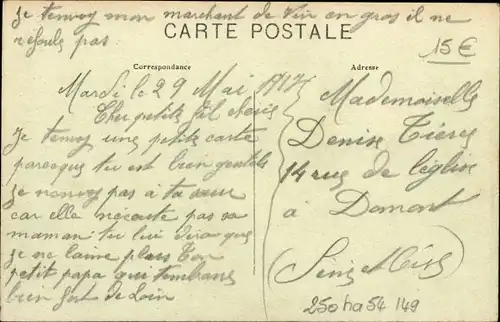 Je tenvoy mon marchant de Vin en gros il ne
refoule pas
CARTE POSTALE
15€
Correspondance
Adresse
Mardi le 29 Mai 1917
Cher petite fil cherie
Je tenvoy une petite carte
parceque tu est bien gentile
je nonvoy pas à ta sœur
car elle nécoute pas sa
maman tu lui dira que
je ne laime plais Ton
petit papa qui tembrasse
bien fort de Loin
Mademoiselle
Denise
14 rue de léglise
à Domont
(Seine et Oise)
250 ha 54 149